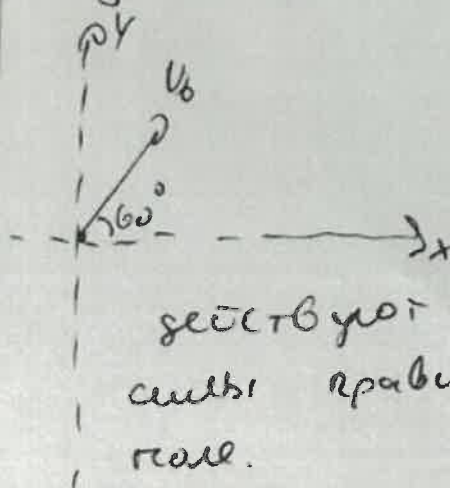 y
v₀
60°
x
действуют
силы грави
поле.